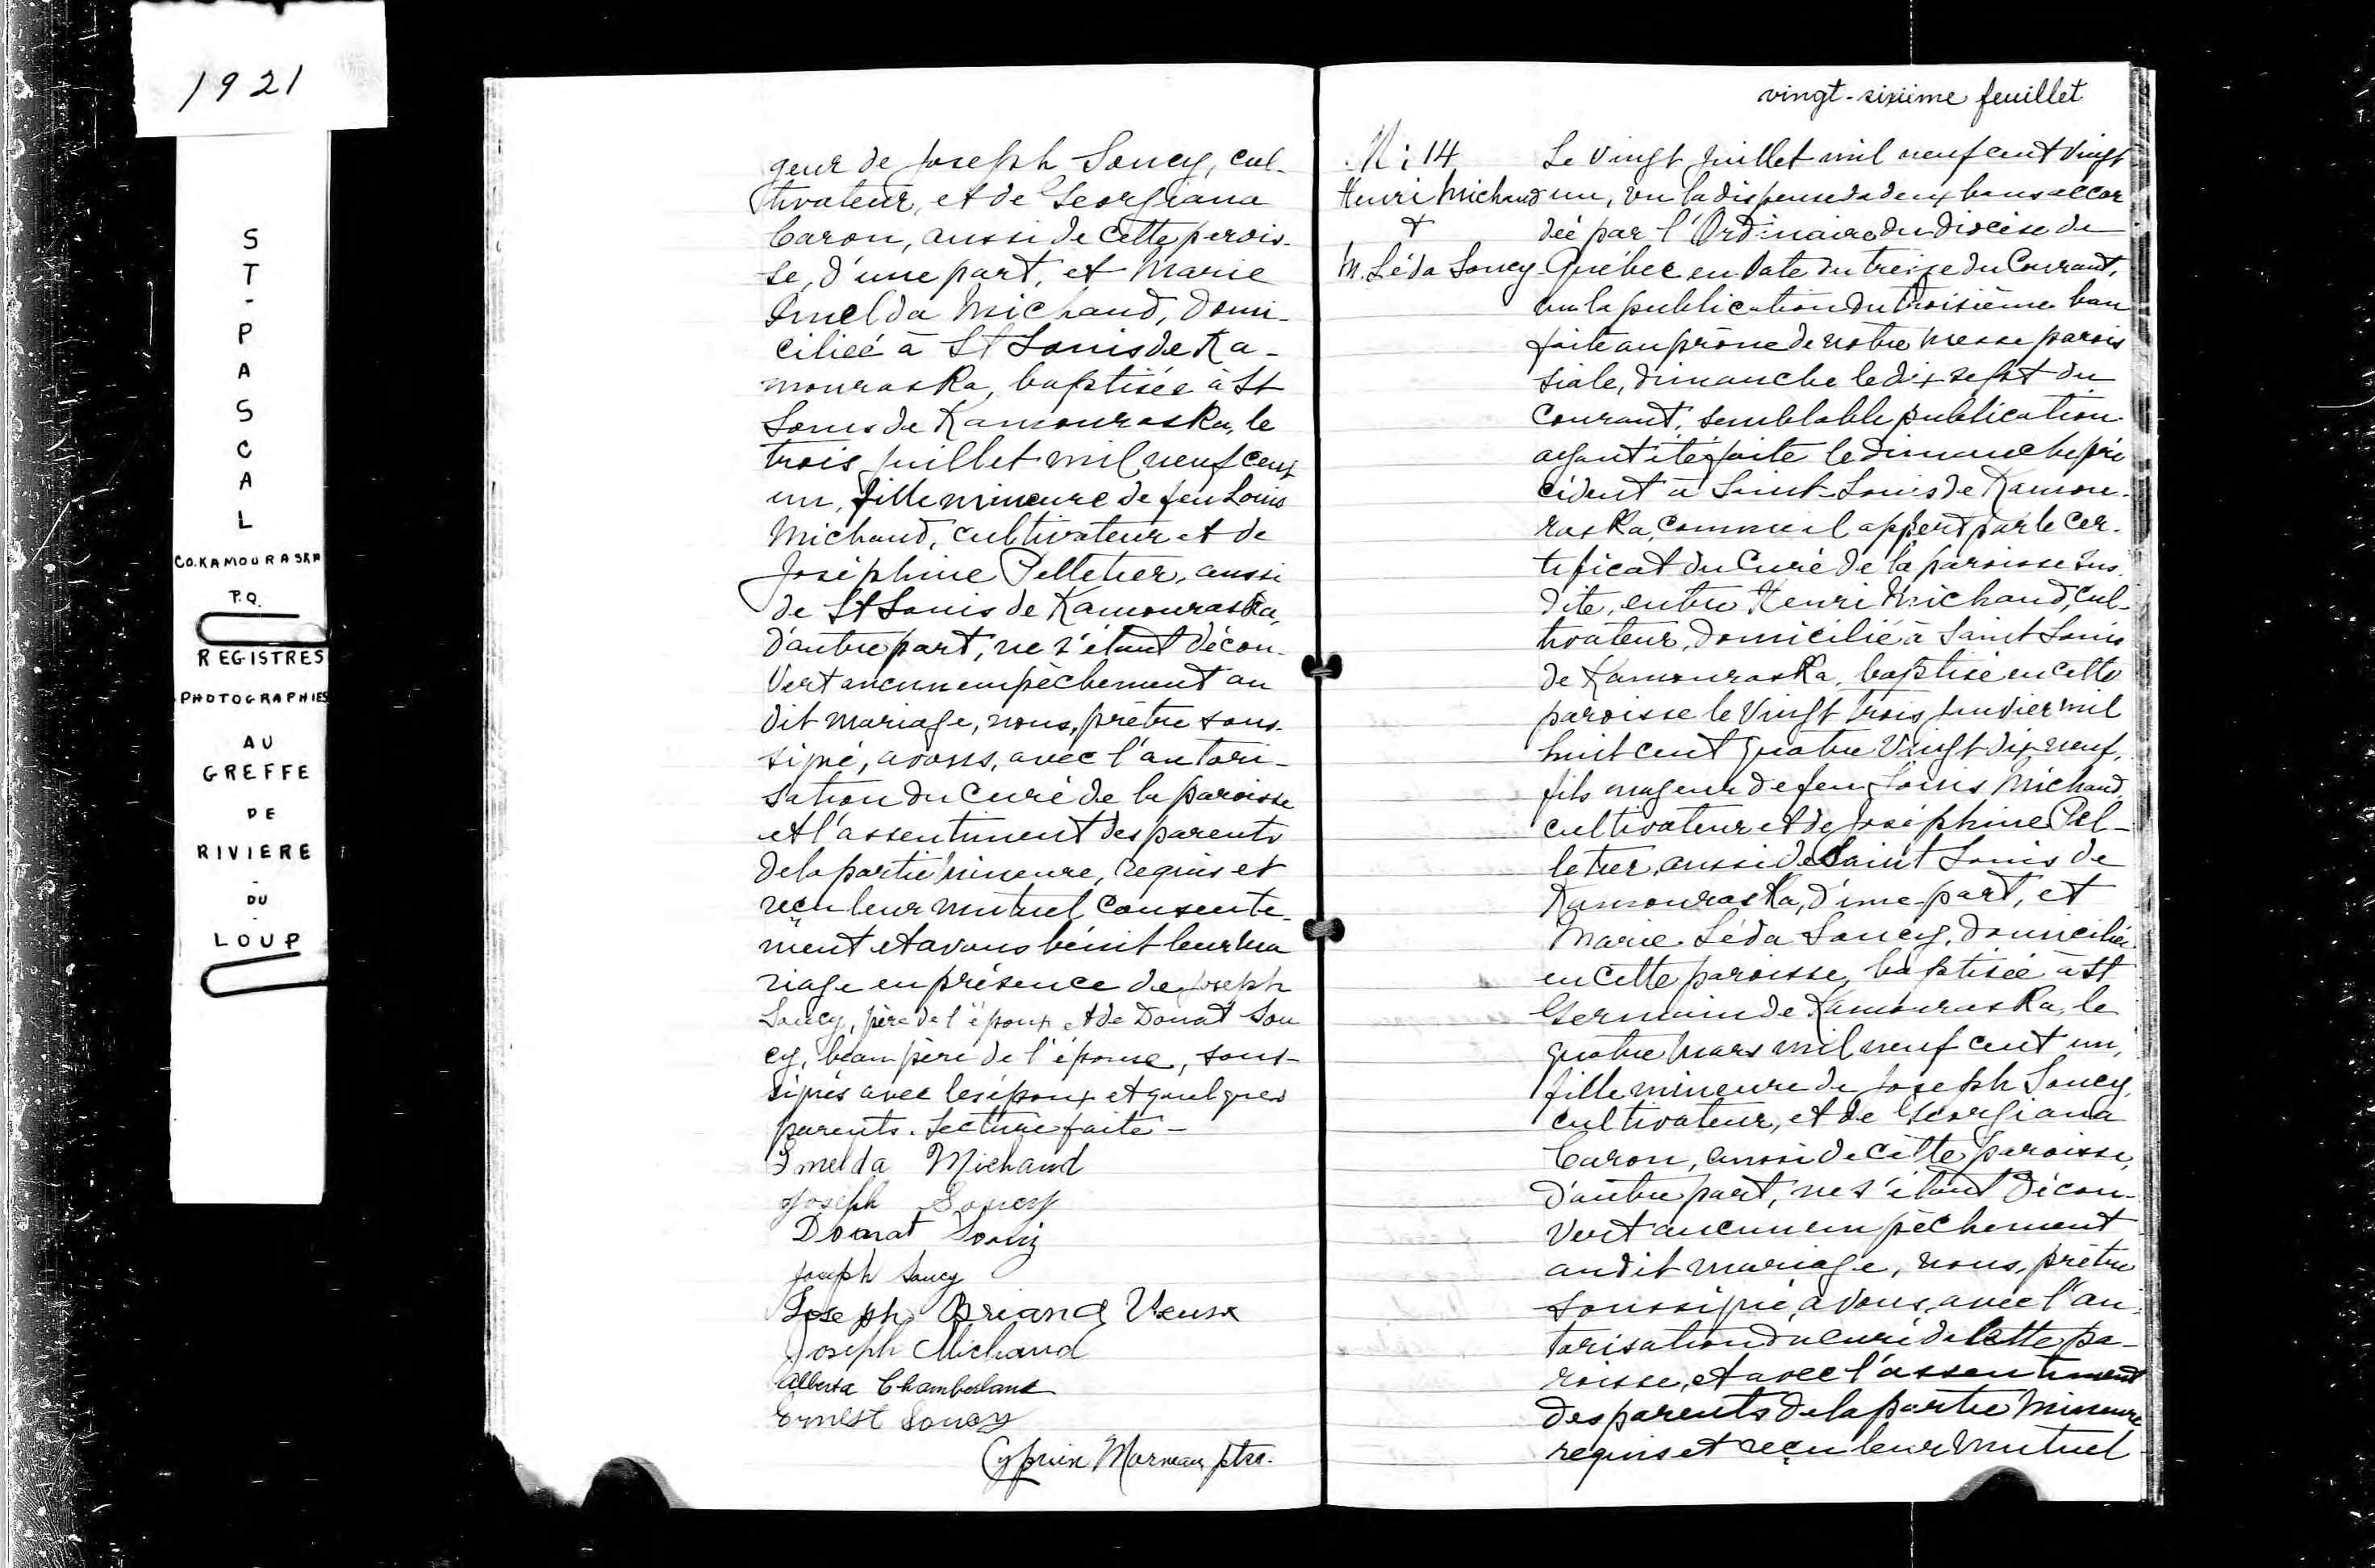 1921
ST-PASCAL
CO. KAMOURASKA
P.Q.
REGISTRES
PHOTOGRAPHIES
AU
GREFFE
DE
RIVIERE
-
DU
-
LOUP
geur de Joseph Soucy, cul-
tivateur, et de Georgiana
Caron, aussi de cette parois-
se, d'une part, et Marie
Imelda Michaud, domi-
ciliée à St Louis de Ka-
mouraska, baptisée à St
Louis de Kamouraska, le
trois juillet mil neuf cent
un, fille mineure de feu Louis
Michaud, cultivateur et de
Joséphine Pelletier, aussi
de St Louis de Kamouraska,
d'autre part, ne s'étant décou-
vert aucun empêchement au
dit mariage, nous, prêtre sous-
signé, avons, avec l'autori-
sation du Curé de la paroisse
et l'assentiment des parents
de la partie mineure, requis et
reçu leur mutuel consente-
ment et avons bénit leur ma
riage en présence de Joseph
Soucy, père de l'époux et de Donat Sou
cy, beau père de l'épouse, sous-
signés avec les époux et quelques
parents. Lecture faite -
Imelda Michaud
Joseph Soucy
Donat Soucy
Joseph Soucy
Joseph Briand
Joseph Michaud
Alberta Chamberland
Ernest Soucy
Cyprien Marneau ptre.
vingt-sixième feuillet
N: 14
Henri Michaud
+
M. Léda Soucy
Le vingt juillet mil neuf cent vingt
un, vu la dispense de deux bans accor
dée par l'Ordinaire du diocèse de
Québec en date du treize du courant,
vu la publication du troisième ban
faite au prône de notre messe parois
siale, dimanche le dix sept du
courant, semblable publication
ayant été faite le dimanche pré
cédent à Saint-Louis de Kamou-
raska, comme il appert par le cer-
tificat du Curé de la paroisse sus
dite, entre Henri Michaud, cul-
tivateur, domicilié à Saint Louis
de Kamouraska, baptisé en cette
paroisse le vingt trois janvier mil
huit cent quatre vingt dix neuf,
fils majeur de feu Louis Michaud,
cultivateur et de Joséphine Pel-
letier, aussi de Saint Louis de
Kamouraska, d'une part, et
Marie Léda Soucy, domiciliée
en cette paroisse, baptisée à St
Germain de Kamouraska, le
quatre mars mil neuf cent un,
fille mineure de Joseph Soucy,
cultivateur, et de Georgiana
Caron, aussi de cette paroisse,
d'autre part, ne s'étant décou-
vert aucun empêchement
au dit mariage, nous, prêtre
soussigné, avons, avec l'au-
torisation du curé de cette pa-
roisse, et avec l'assentiment
des parents de la partie mineure
requis et reçu leur mutuel